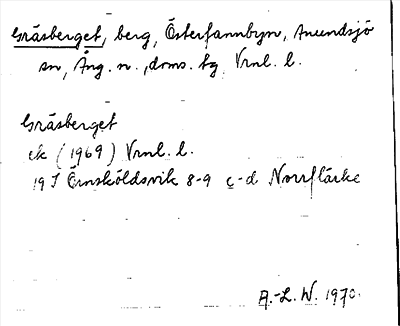 Gråsberget, berg, Österfannbyn, Anundsjö
sn, Ång. n., doms. tg Vrnl. l.
Gråsberget
ek (1969) Vrnl. l.
19 J Örnsköldsvik 8-9 c-d Norrflärke
A.-L. W. 1970.